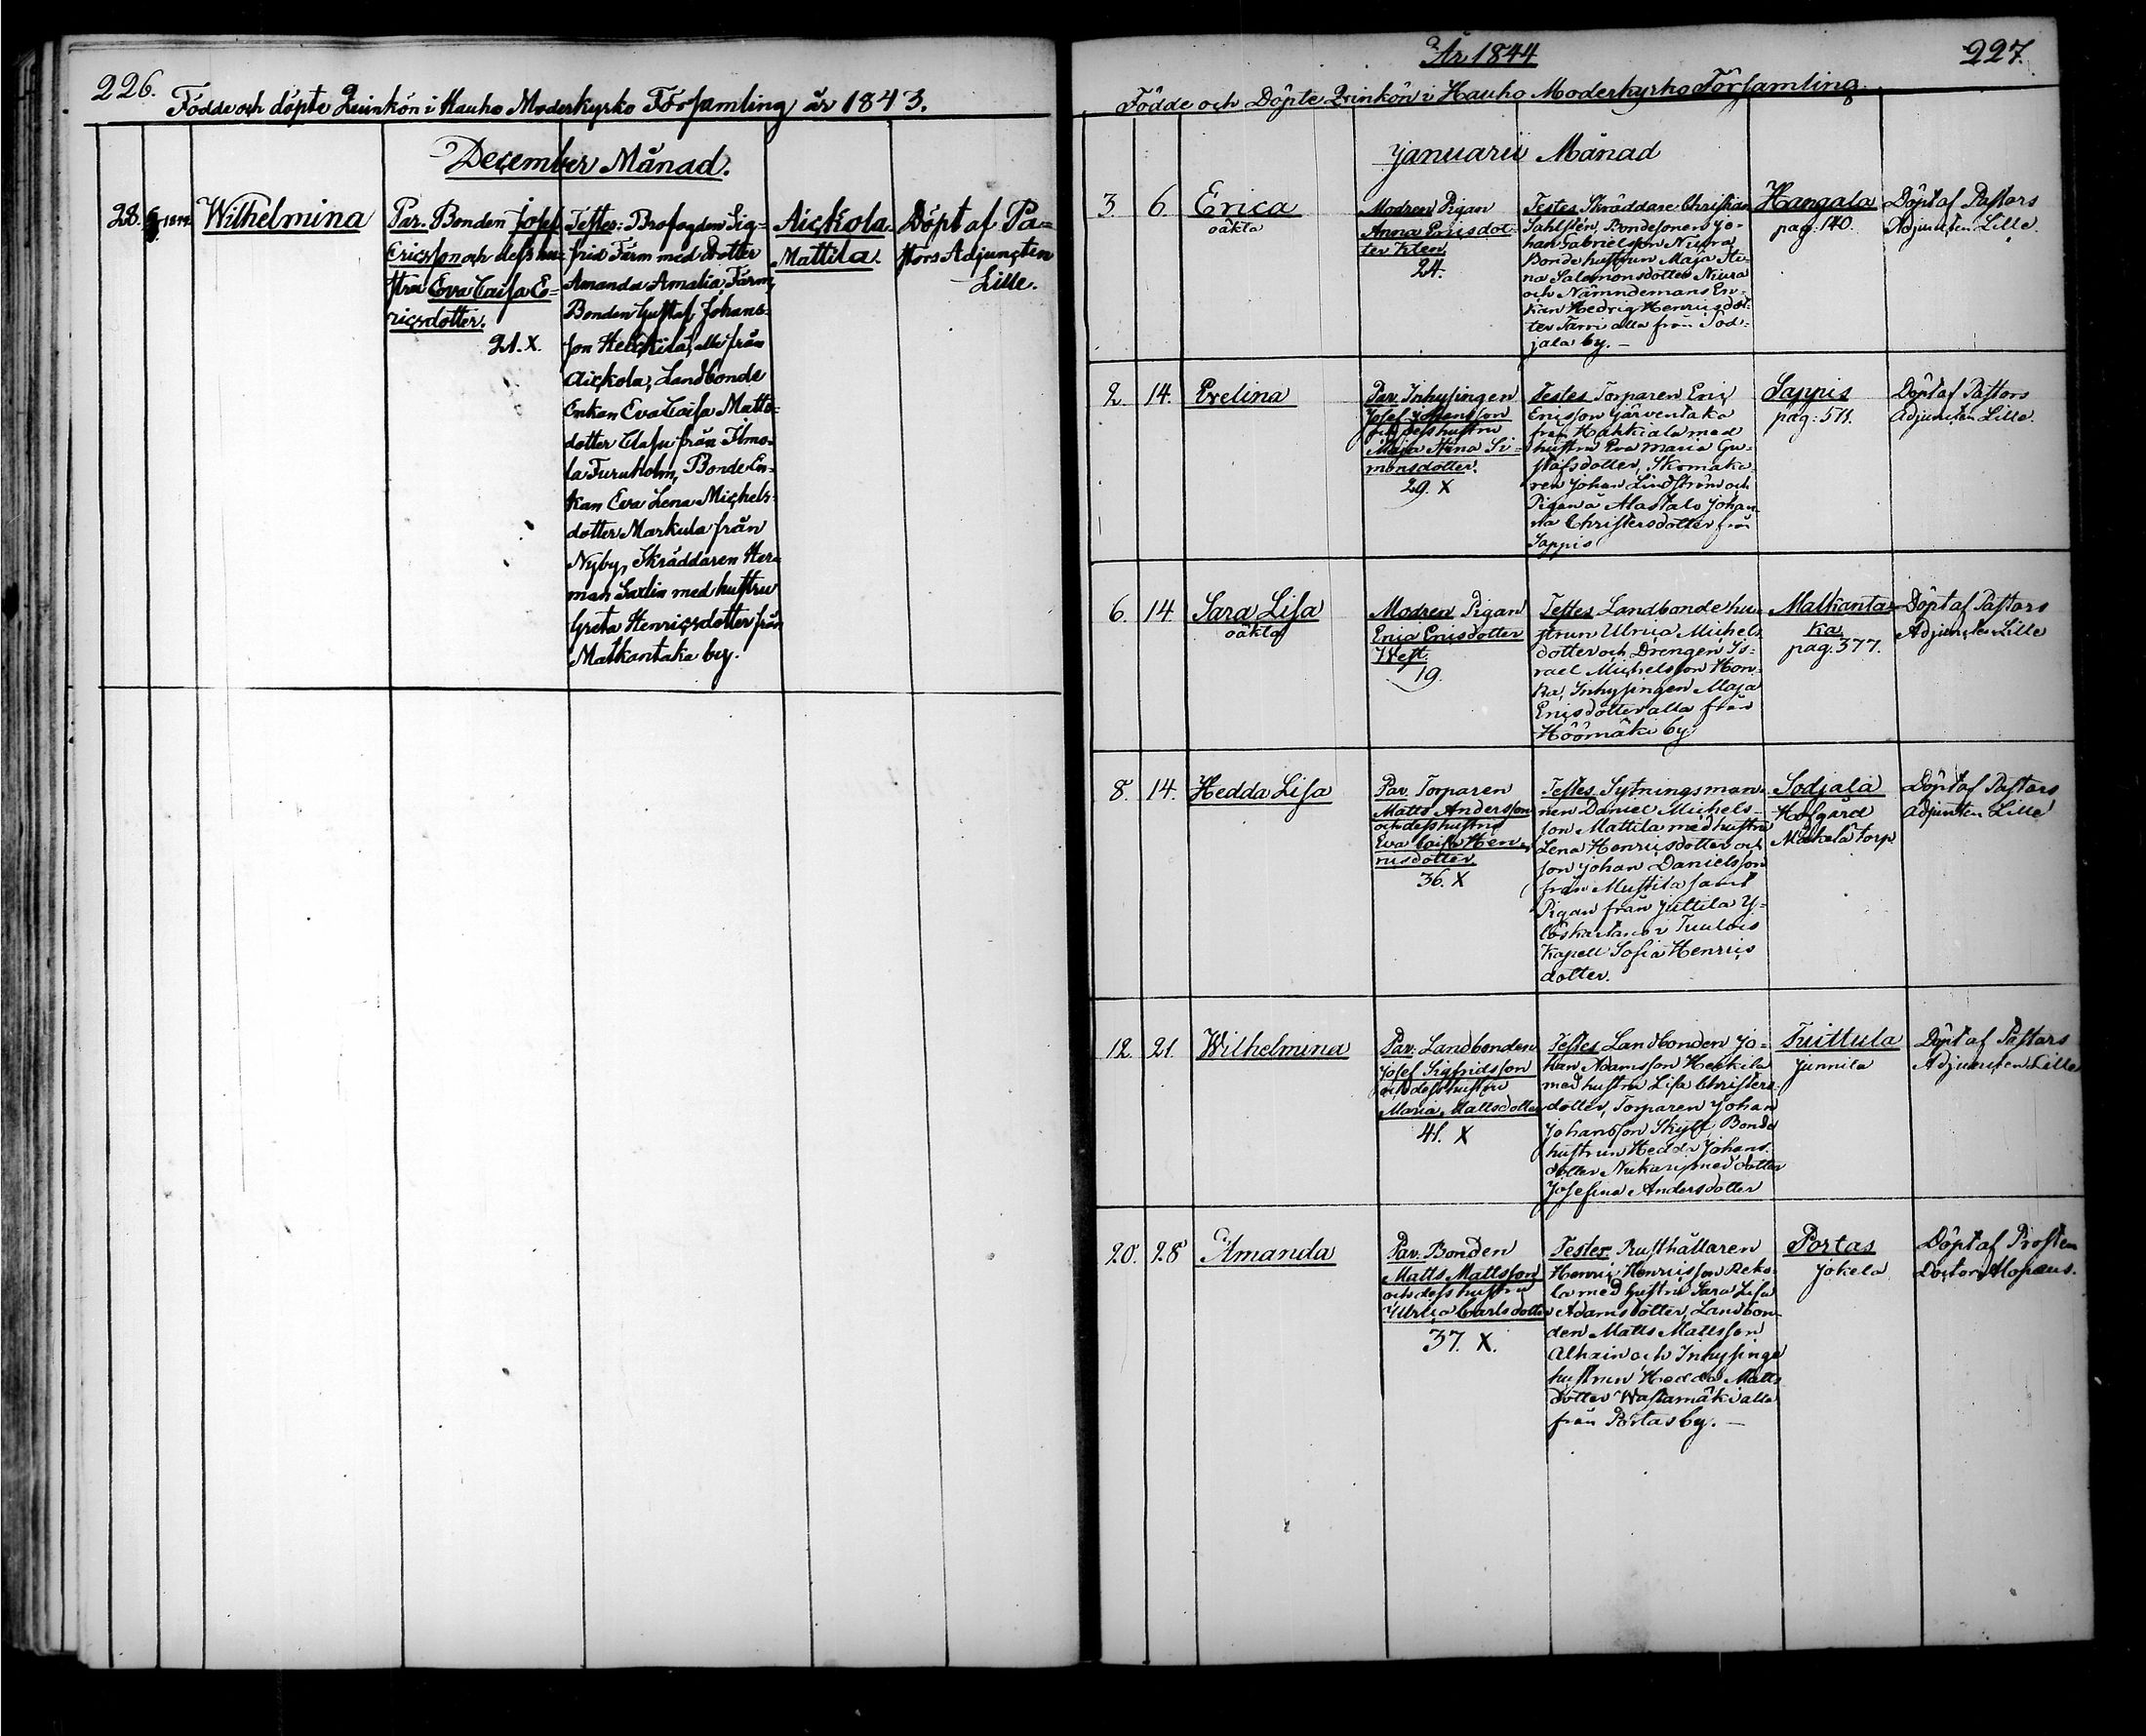 226.
Födde och döpte Quinkön i Hauho Moderkyrko Församling år 1843.
December Månad.
28.
Wilhelmina
Par. Bonden Josef
Ericsson och dess hu-
stru Eva Caisa E-
ricsdotter.
21. X.
Testes: Brofogden Sig-
frid Färm med dotter
Amanda Amalia Färm,
Bonden Gustaf Johans-
son Heickilä, alla från
Aickola, Landbonde
Enkan Eva Caisa Matts-
dotter Clasu från Ilmo-
la Furuholm, Bonde En-
kan Eva Lena Michels-
dotter Markula från
Nyby, Skräddaren Her-
man Saxlin med hustru
Greta Henricsdotter från
Matkantaka by.
Aickola.
Mattila.
Döpt af Pa-
stors Adjuncten
Lille.
År 1844
227.
Födde och Döpte Qvinkön i Hauho Moderkyrko Församling.
Januarii Månad
3 6. Erica
oäkta
Modren Pigan
Anna Ericsdot-
ter Klen
24.
Testes Skräddare Christian
Sahlsten, Bondesonen Jo-
han Gabrielsson Niura
Bonde hustrun Maja Sti-
na Salomonsdotter Niura
och Nämndemans En-
kan Hedvig Henricsdot-
ter Tarri alla från Sod-
jala by. —
Hangala
pag: 140.
Döpt af Pastors
Adjuncten Lille.
2. 14. Evelina
Par. Inhysingen
Josef Johansson
och dess hustru
Maja Stina Si-
monsdotter.
29. X
Testes Torparen Eric
Ericsson Järventaka
från Hahkiala med
hustru Eva Maria Gu-
stafsdotter, Skomaka-
ren Johan Lindström och
Pigan å Alastalo Johan-
na Christersdotter från
Sappis
Sappis
pag: 511.
Döpt af Pastors
Adjuncten Lille.
6. 14 Sara Lisa
oäkta
Modren Pigan
Erica Ericsdotter
West.
19.
Testes Landbonde hu-
strun Ulrica Michels
dotter och Drengen Is-
rael Michelsson Hon-
ka, Inhysingen Maja
Ericsdotter alla från
Höömäki by
Matkanta-
ka
pag. 377.
Döpt af Pastors
Adjuncten Lille
8. 14. Hedda Lisa
Par. Torparen
Matts Andersson
och dess hustru
Eva Caisa Hen-
ricsdotter
36. X
Testes Sytningsman-
nen Daniel Michels-
son Mattila med hustru
Lena Henricsdotter och
son Johan Danielsson
från Mustila samt
Pigan från Juttila Y-
löskartano i Tuulois
Kapell Sofia Henrics
dotter.
Sodjala
Hofgård
Mäkelä torp
Döpt af Pastors
Adjuncten Lille
12. 21. Wilhelmina
Par. Landbonden
Josef Sigfridsson
och dess hustru
Maria Mattsdotter
41. X
Testes Landbonden Jo-
han Adamsson Heikkilä
med hustru Lisa Christers
dotter, Torparen Johan
Johansson Skytt Bonde
hustrun Hedda Johans
dotter Nukari med dotter
Josefina Andersdotter
Tuittula
Junnila
Döpt af Pastors
Adjuncten Lille
20. 28 Amanda
Par. Bonden
Matts Mattsson
och dess hustru
Ulrica Carlsdotter
37. X.
Testes Rusthållaren
Henric Henricsson Reko-
la med hustru Sara Lisa
Adamsdotter, Landbon-
den Matts Mattsson
Alhain och Inhysinge
hustrun Hedda Matts
dotter Wastamäki alla
från Portas by. —
Portas
Jokela
Döpt af Prosten
Doctor Alopæus.